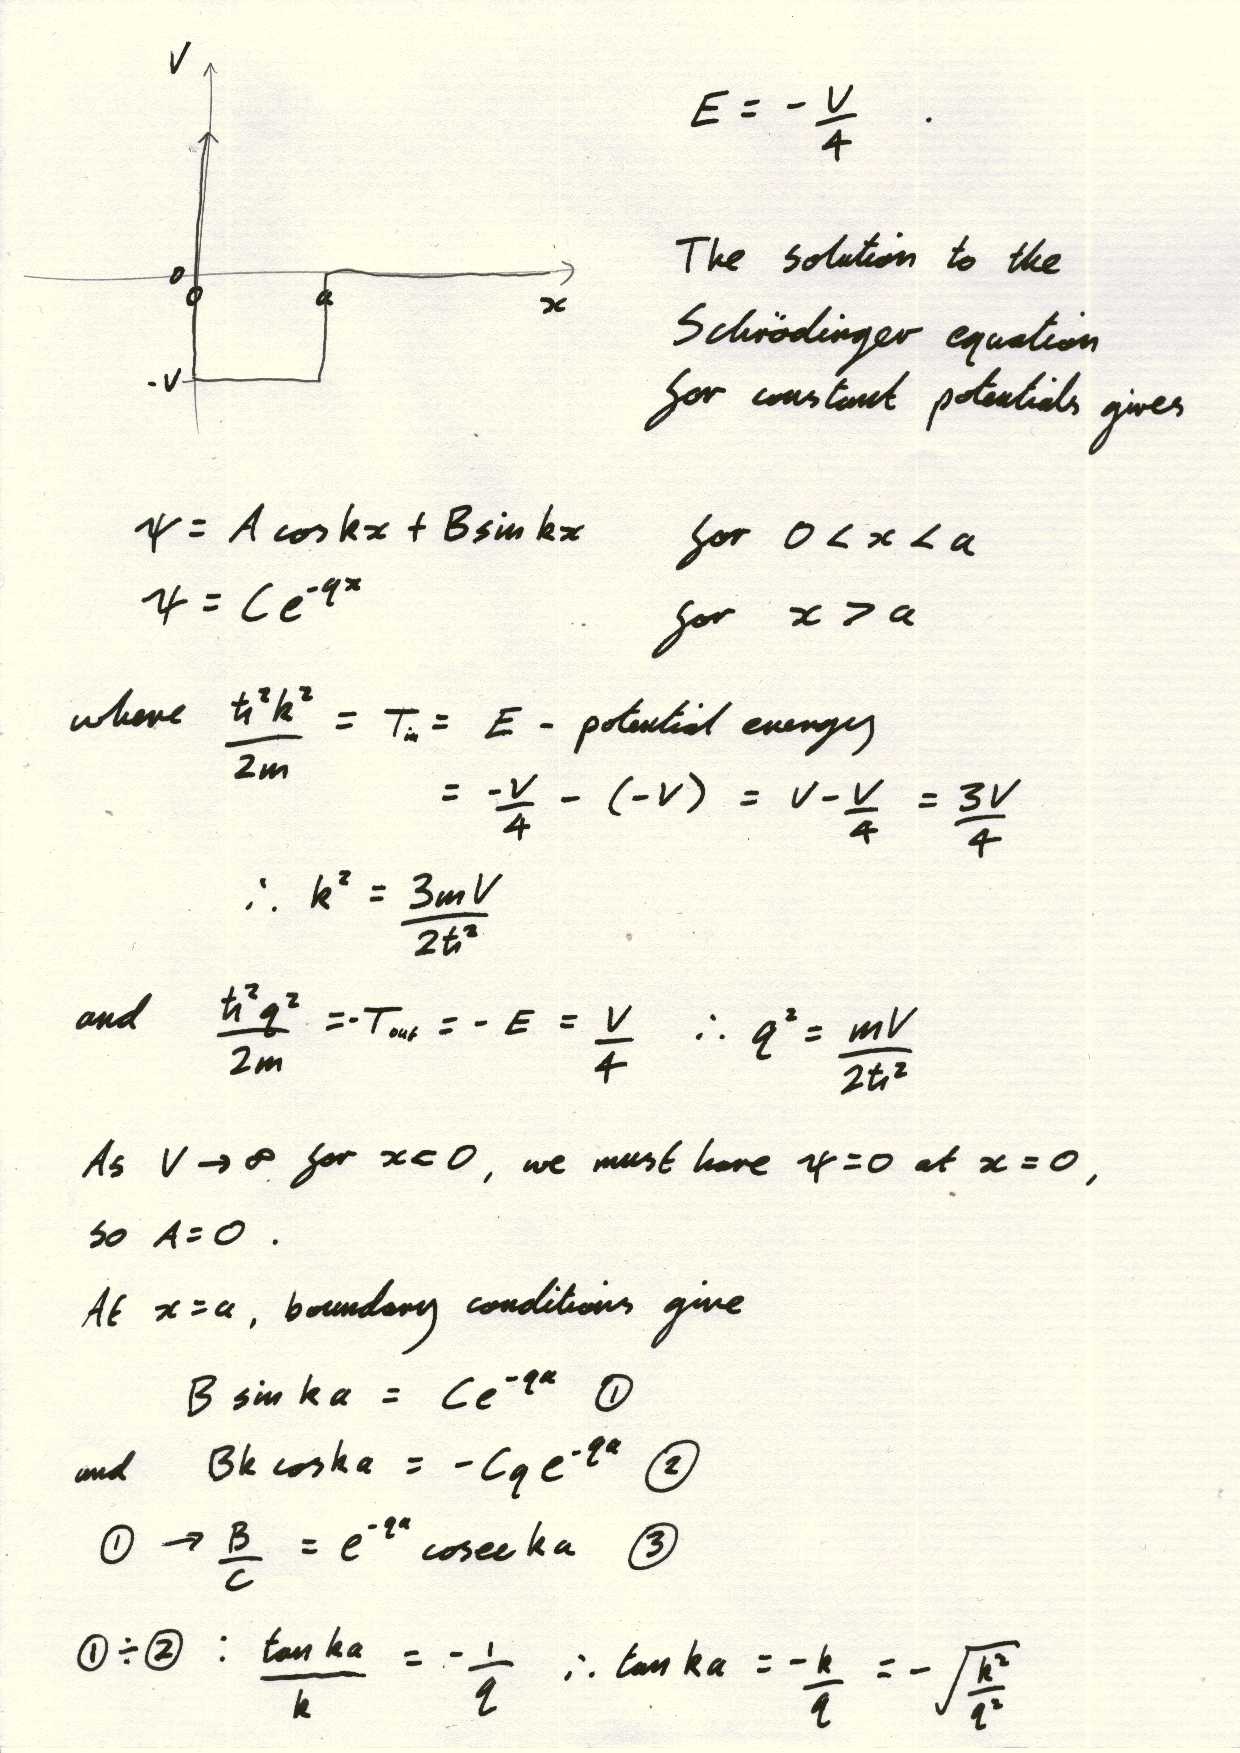 V
E = -V/4 .
0
0 a x
-V
The solution to the
Schrödinger equation
for constant potentials gives
ψ = A cos kx + B sin kx for 0 < x < a
ψ = Ce^{-qx} for x > a
where ħ²k²/2m = T_in = E - potential energy
= -V/4 - (-V) = V - V/4 = 3V/4
∴ k² = 3mV/2ħ²
and ħ²q²/2m = -T_out = -E = V/4 ∴ q² = mV/2ħ²
As V → ∞ for x < 0, we must have ψ = 0 at x = 0,
so A = 0 .
At x = a, boundary conditions give
B sin ka = Ce^{-qa} ①
and Bk cos ka = -Cq e^{-qa} ②
① → B/C = e^{-qa} cosec ka ③
① ÷ ② : tan ka/k = -1/q ∴ tan ka = -k/q = -√(k²/q²)